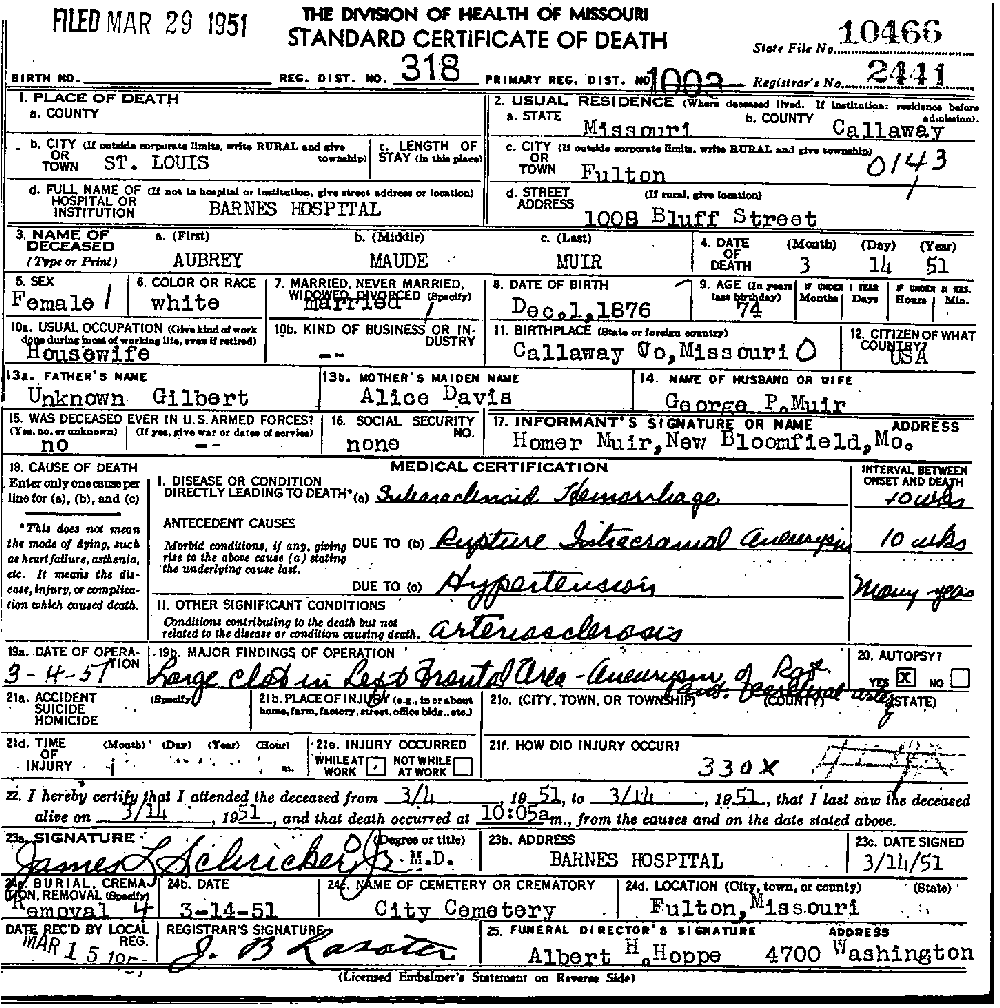 FILED MAR 29 1951
THE DIVISION OF HEALTH OF MISSOURI
STANDARD CERTIFICATE OF DEATH
State File No. 10466
BIRTH NO. REG. DIST. NO. 318 PRIMARY REG. DIST. NO. 1003 Registrar's No. 2441
1. PLACE OF DEATH
a. COUNTY
b. CITY (If outside corporate limits, write RURAL and give township) OR TOWN ST. LOUIS
c. LENGTH OF STAY (in this place)
d. FULL NAME OF HOSPITAL OR INSTITUTION (If not in hospital or institution, give street address or location) BARNES HOSPITAL
2. USUAL RESIDENCE (Where deceased lived. If institution: residence before admission).
a. STATE Missouri b. COUNTY Callaway
c. CITY (If outside corporate limits, write RURAL and give township) OR TOWN Fulton 0143
d. STREET ADDRESS (If rural, give location) 1008 Bluff Street
3. NAME OF DECEASED (Type or Print) a. (First) AUBREY b. (Middle) MAUDE c. (Last) MUIR
4. DATE OF DEATH (Month) (Day) (Year) 3 14 51
5. SEX Female
6. COLOR OR RACE white
7. MARRIED, NEVER MARRIED, WIDOWED, DIVORCED (Specify) married
8. DATE OF BIRTH Dec.1,1876
9. AGE (In years last birthday) 74 IF UNDER 1 YEAR Months Days IF UNDER 24 HRS. Hours Min.
10a. USUAL OCCUPATION (Give kind of work done during most of working life, even if retired) Housewife
10b. KIND OF BUSINESS OR INDUSTRY --
11. BIRTHPLACE (State or foreign country) Callaway Co,Missouri 0
12. CITIZEN OF WHAT COUNTRY? USA
13a. FATHER'S NAME Unknown Gilbert
13b. MOTHER'S MAIDEN NAME Alice Davis
14. NAME OF HUSBAND OR WIFE George P.Muir
15. WAS DECEASED EVER IN U.S. ARMED FORCES? (Yes, no, or unknown) (If yes, give war or dates of service) no --
16. SOCIAL SECURITY NO. none
17. INFORMANT'S SIGNATURE OR NAME ADDRESS Homer Muir,New Bloomfield,Mo.
18. CAUSE OF DEATH
Enter only one cause per line for (a), (b), and (c)
*This does not mean the mode of dying, such as heart failure, asthenia, etc. It means the disease, injury, or complication which caused death.
MEDICAL CERTIFICATION
INTERVAL BETWEEN ONSET AND DEATH
I. DISEASE OR CONDITION DIRECTLY LEADING TO DEATH* (a) Subarachnoid Hemorrhage 10 wks
ANTECEDENT CAUSES
Morbid conditions, if any, giving rise to the above cause (a) stating the underlying cause last.
DUE TO (b) Rupture Intracranial Aneurysm 10 wks
DUE TO (c) Hypertension Many years
II. OTHER SIGNIFICANT CONDITIONS
Conditions contributing to the death but not related to the disease or condition causing death. arteriosclerosis
19a. DATE OF OPERATION 3-4-51
19b. MAJOR FINDINGS OF OPERATION Large clot in Left Frontal Area - Aneurysm of cerebral artery
20. AUTOPSY? YES X NO
21a. ACCIDENT SUICIDE HOMICIDE (Specify)
21b. PLACE OF INJURY (e.g., in or about home, farm, factory, street, office bldg., etc.)
21c. (CITY, TOWN, OR TOWNSHIP) (COUNTY) (STATE)
21d. TIME OF INJURY (Month) (Day) (Year) (Hour) m.
21e. INJURY OCCURRED WHILE AT WORK NOT WHILE AT WORK
21f. HOW DID INJURY OCCUR?
330X
22. I hereby certify that I attended the deceased from 3/4, 1951, to 3/14, 1951, that I last saw the deceased
alive on 3/14, 1951, and that death occurred at 10:05a m., from the causes and on the date stated above.
23a. SIGNATURE (Degree or title) James L Schricker Jr. M.D.
23b. ADDRESS BARNES HOSPITAL
23c. DATE SIGNED 3/14/51
24a. BURIAL, CREMATION, REMOVAL (Specify) Removal 4
24b. DATE 3-14-51
24c. NAME OF CEMETERY OR CREMATORY City Cemetery
24d. LOCATION (City, town, or county) (State) Fulton,Missouri
DATE REC'D BY LOCAL REG. MAR 15
REGISTRAR'S SIGNATURE
25. FUNERAL DIRECTOR'S SIGNATURE ADDRESS Albert H.Hoppe 4700 Washington
(Licensed Embalmer's Statement on Reverse Side)